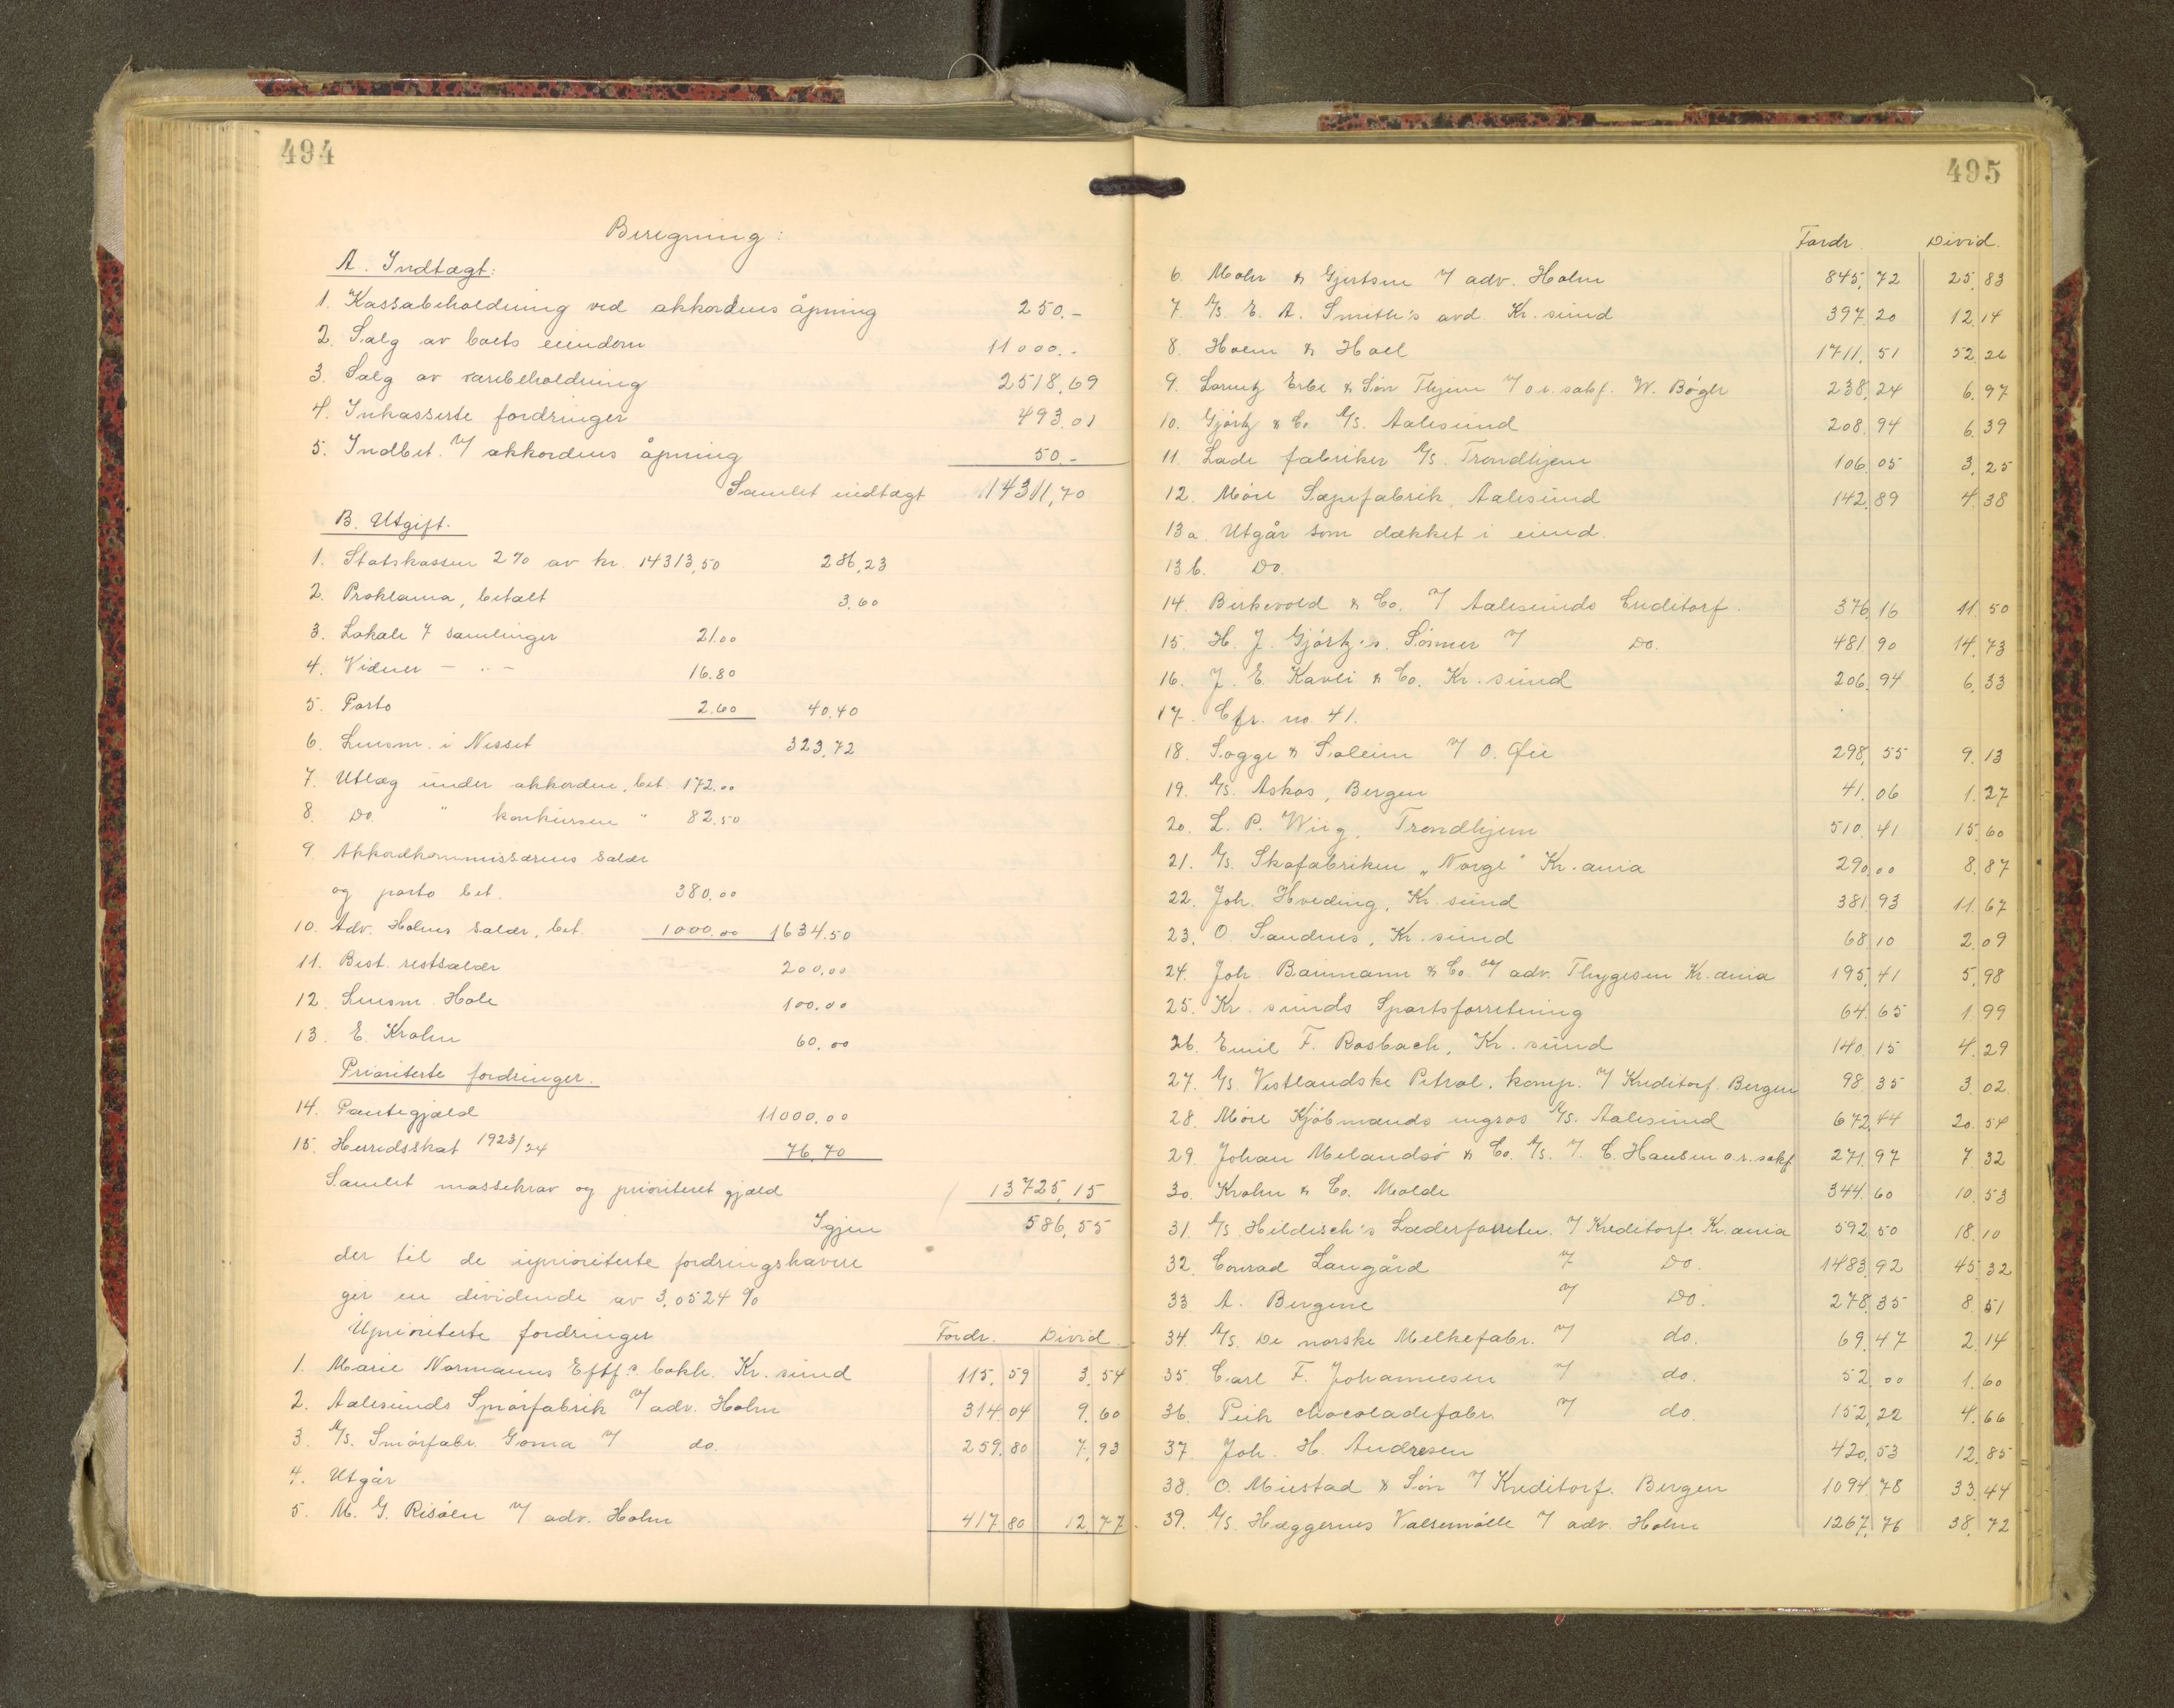 494
Beregning:
A. Indtægt:
1. Kassabeholdning ved akkordens åpning 250.-
2. Salg av boets eiendom 11000.-
3. Salg av varebeholdning 2518,69
4. Inkasserte fordringer 493.01
5. Indbet. v/ akkordens åpning 50.-
Samlet indtægt 14311,70
B. Utgift.
1. Statskassen 2% av kr. 14313,50 286,23
2. Proklama, betalt 3.60
3. Lokale f samlinger 21.00
4. Vidner - " - 16.80
5. Porto 2.60 40.40
6. Lensm. i Nesset 323,72
7. Utlæg under akkorden, bet. 172.00
8. Do. " konkursen " 82.50
9. Akkordkommissærens salær
og porto bet. 380.00
10. Adv. Holms salær, bet. 1000.00 1634.50
11. Best. restsalær 200.00
12. Lensm. Hole 100.00
13. E. Krohn 60.00
Prioriterte fordringer.
14. Pantegjæld 11000.00
15. Herredsskat 1923/24 76.70
Samlet massekrav og prioritert gjæld 13725,15
Igjen 586,55
der til de uprioriterte fordringshavere
gir en dividende av 3,0524 %
Uprioriterte fordringer Fordr. Divid.
1. Marie Normanns Eftf.s bokh. Kr.sund 115,59 3,54
2. Aalesunds Smørfabrik v/ adv. Holm 314.04 9,60
3. A/s. Smørfabr. Goma v/ do. 259,80 7,93
4. Utgår
5. M. G. Risøen v/ adv. Holm 417,80 12,77
495
Fordr. Divid.
6. Mohr & Gjertsen v/ adv. Holm 845,72 25,83
7. A/s. E. A. Smith's avd. Kr.sund 397,20 12,14
8. Holm & Hoel 1711,51 52,26
9. Lorentz Erbe & Søn Thjem v/ o.r.sakf. W. Bøgh 238,24 6,97
10. Gjørtz & Co. A/s. Aalesund 208,94 6,39
11. Lade fabriker A/s. Trondhjem 106,05 3,25
12. Møre Sæpefabrik, Aalesund 142,89 4,38
13a. Utgår som dækket i eiend.
13b. Do.
14. Birkevold & Co. v/ Aalesunds Creditorf. 376,16 11,50
15. H. J. Gjørtz's. Sønner v/ Do. 481,90 14,73
16. J. E. Kavli & Co. Kr.sund 206,94 6,33
17. Cfr. no. 41.
18. Sogge & Soleim v/ O. Øie 298,55 9,13
19. A/s. Askos, Bergen 41,06 1,27
20. L. P. Wiig, Trondhjem 510,41 15,60
21. A/s. Skofabriken „Norge" Kr.ania 290,00 8,87
22. Joh. Hveding, Kr.sund 381,93 11,67
23. O. Sandnes, Kr.sund 68,10 2,09
24. Joh. Baumann & Co. v/ adv. Thygesen Kr.ania 195,41 5,98
25. Kr.sunds Sportsforretning 64,65 1,99
26. Emil F. Rosbach, Kr.sund 140,15 4,29
27. A/s. Vestlandske Petrol.komp. v/ Kreditorf. Bergen 98,35 3,02
28. Møre Kjøbmands engros A/s. Aalesund 672,44 20,54
29. Johan Melandsø & Co. A/s. v/ C. Hansen o.r.sakf 271,97 7,32
30. Krohn & Co. Molde 344,60 10,53
31. A/s. Hildisch's Læderforretn. v/ Kreditorf. Kr.ania 592,50 18,10
32. Conrad Langård v/ Do. 1483,92 45,32
33. A. Bergene v/ Do. 278,35 8,51
34. A/s. De norske Melkefabr. v/ do. 69,47 2,14
35. Carl F. Johannesen v/ do. 52,00 1,60
36. Peik chocoladefabr. v/ do. 152,22 4,66
37. Joh. H. Andresen 420,53 12,85
38. O. Mustad & Søn v/ Kreditorf. Bergen 1094,78 33,44
39. A/s. Hæggernes Valsemølle v/ adv. Holm 1267,76 38,72